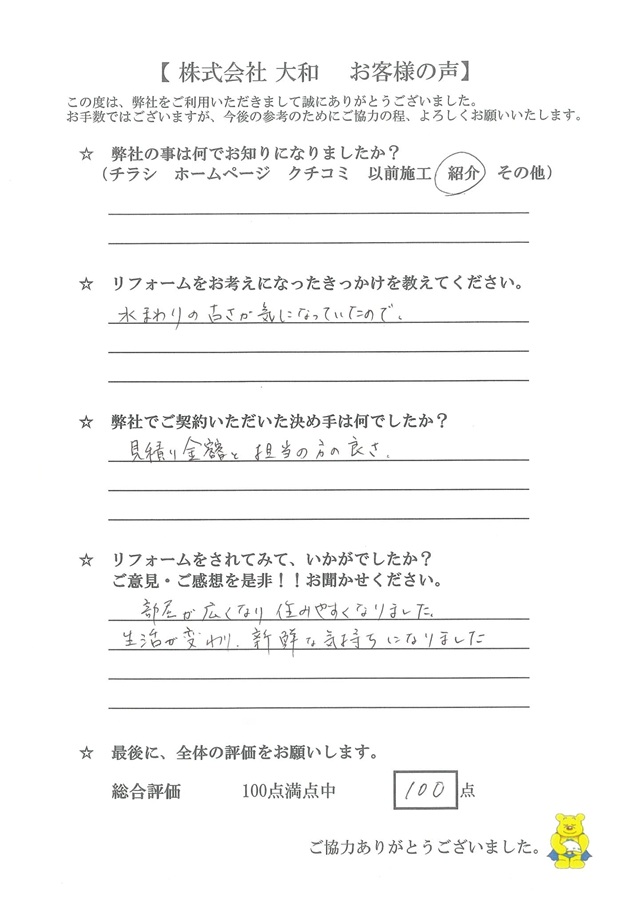 【 株式会社 大和　お客様の声】
この度は、弊社をご利用いただきまして誠にありがとうございました。
お手数ではございますが、今後の参考のためにご協力の程、よろしくお願いいたします。
☆ 弊社の事は何でお知りになりましたか？
（チラシ　ホームページ　クチコミ　以前施工　紹介　その他）
☆ リフォームをお考えになったきっかけを教えてください。
水まわりの古さが気になっていたので、
☆ 弊社でご契約いただいた決め手は何でしたか？
見積り金額と担当の方の良さ。
☆ リフォームをされてみて、いかがでしたか？
ご意見・ご感想を是非！！お聞かせください。
部屋が広くなり住みやすくなりました。
生活が変わり、新鮮な気持ちになりました
☆ 最後に、全体の評価をお願いします。
総合評価　100点満点中　100 点
ご協力ありがとうございました。